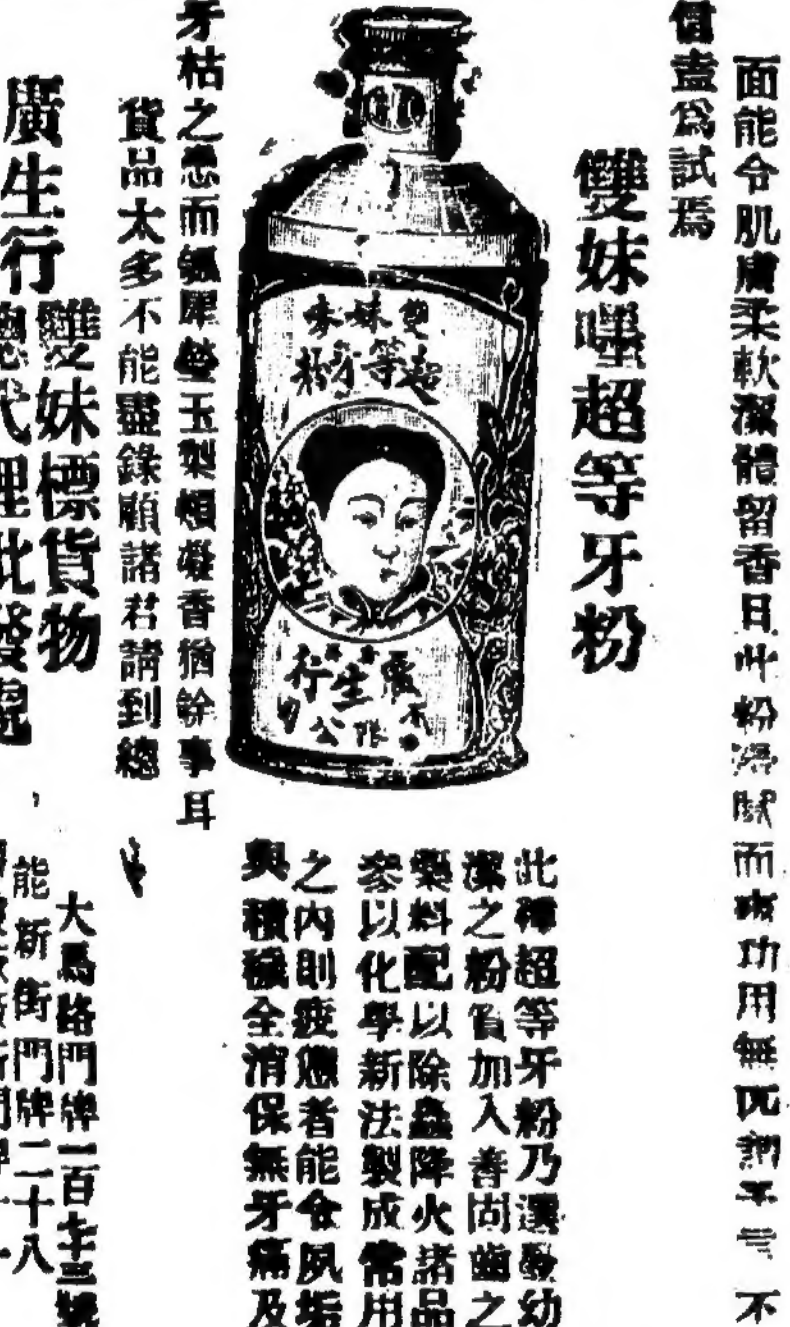 面能令肌膚柔軟潔體留香且此粉 而 功用無 不
信盍爲試焉
雙妹嚜超等牙粉
雙妹嚜
超等牙粉
廣生行
有限公司
此種超等牙粉乃選 幼
潔之粉質加入善固齒之
藥料配以除蟲降火諸品
參以化學新法製成常用
之內則疲憊者能令夙垢
與積穢全消保無牙痛及
牙枯之患而瓠犀瑩玉梨頰凝香猶餘事耳
貨品太多不能盡錄願諸君請到總
雙妹標貨物
廣生行
總代理批發處
大馬路門牌一百 三號
能新街門牌二十八